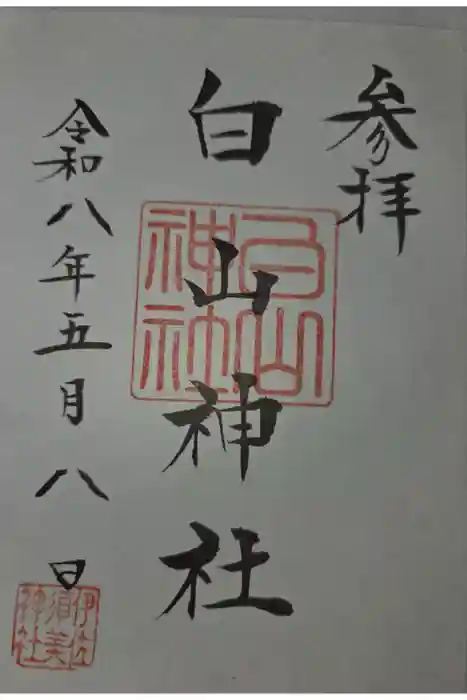 参拝
白山神社
白山神社
令和八年五月八日
伊佐須美神社